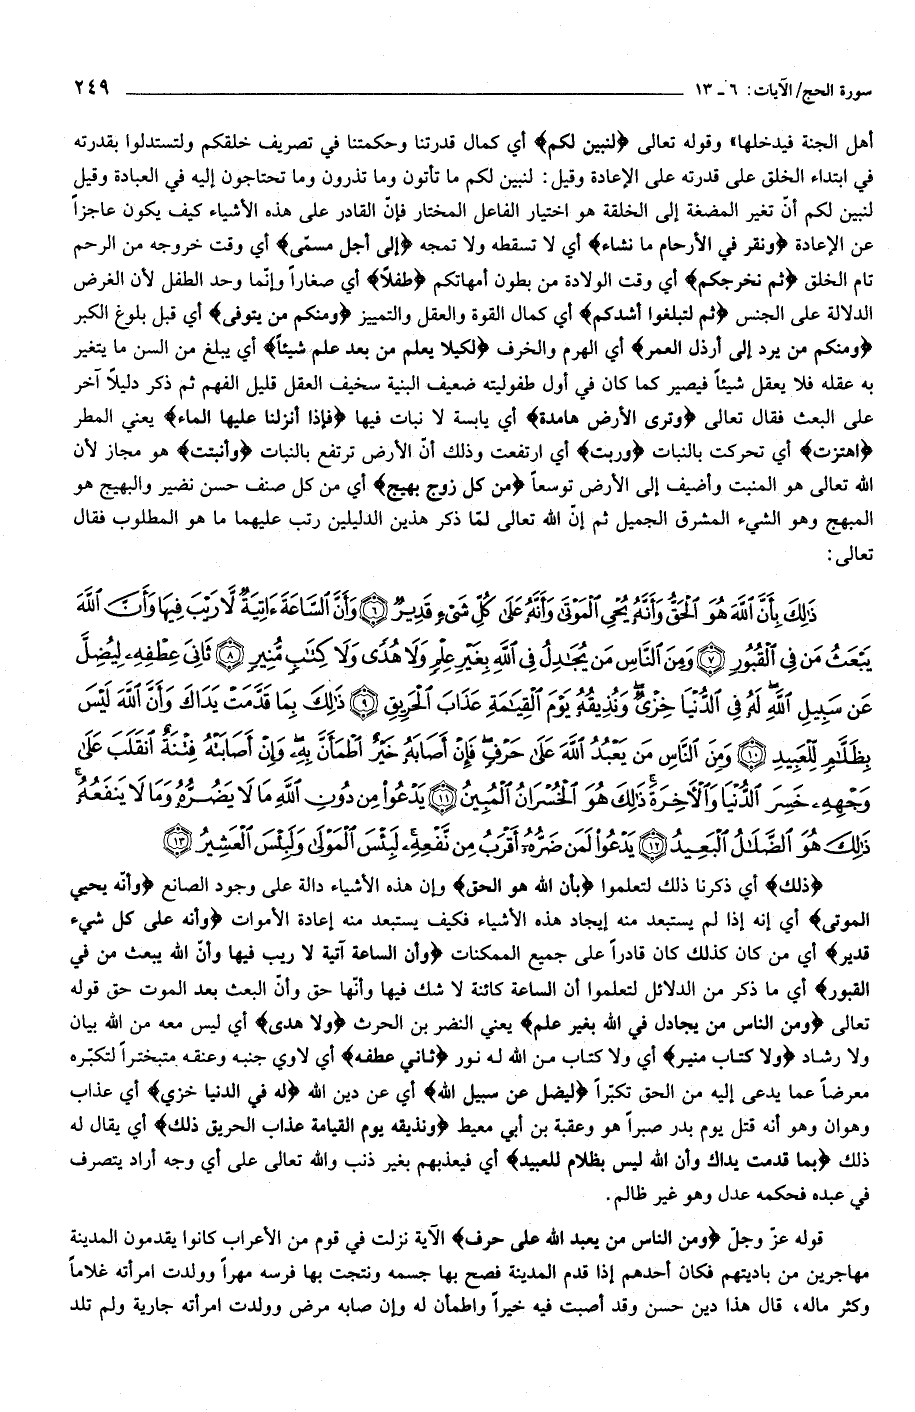 سورة الحج/ الآيات: ٦ - ١٣ ٢٤٩
أهل الجنة فيدخلها» وقوله تعالى ﴿لنبين لكم﴾ أي كمال قدرتنا وحكمتنا في تصريف خلقكم ولتستدلوا بقدرته
في ابتداء الخلق على قدرته على الإعادة وقيل: لنبين لكم ما تأتون وما تذرون وما تحتاجون إليه في العبادة وقيل
لنبين لكم أنّ تغير المضغة إلى الخلقة هو اختيار الفاعل المختار فإنّ القادر على هذه الأشياء كيف يكون عاجزاً
عن الإعادة ﴿ونقر في الأرحام ما نشاء﴾ أي لا تسقطه ولا تمجه ﴿إلى أجل مسمّى﴾ أي وقت خروجه من الرحم
تام الخلق ﴿ثم نخرجكم﴾ أي وقت الولادة من بطون أمهاتكم ﴿طفلاً﴾ أي صغاراً وإنّما وحد الطفل لأن الغرض
الدلالة على الجنس ﴿ثم لتبلغوا أشدكم﴾ أي كمال القوة والعقل والتمييز ﴿ومنكم من يتوفى﴾ أي قبل بلوغ الكبر
﴿ومنكم من يرد إلى أرذل العمر﴾ أي الهرم والخرف ﴿لكيلا يعلم من بعد علم شيئاً﴾ أي يبلغ من السن ما يتغير
به عقله فلا يعقل شيئاً فيصير كما كان في أول طفوليته ضعيف البنية سخيف العقل قليل الفهم ثم ذكر دليلاً آخر
على البعث فقال تعالى ﴿وترى الأرض هامدة﴾ أي يابسة لا نبات فيها ﴿فإذا أنزلنا عليها الماء﴾ يعني المطر
﴿اهتزت﴾ أي تحركت بالنبات ﴿وربت﴾ أي ارتفعت وذلك أنّ الأرض ترتفع بالنبات ﴿وأنبتت﴾ هو مجاز لأن
الله تعالى هو المنبت وأضيف إلى الأرض توسعاً ﴿من كل زوج بهيج﴾ أي من كل صنف حسن نضير والبهيج هو
المبهج وهو الشيء المشرق الجميل ثم إنّ الله تعالى لمّا ذكر هذين الدليلين رتب عليهما ما هو المطلوب فقال
تعالى:
ذَٰلِكَ بِأَنَّ ٱللَّهَ هُوَ ٱلْحَقُّ وَأَنَّهُۥ يُحْىِ ٱلْمَوْتَىٰ وَأَنَّهُۥ عَلَىٰ كُلِّ شَىْءٍ قَدِيرٌ ۝٦ وَأَنَّ ٱلسَّاعَةَ ءَاتِيَةٌ لَّا رَيْبَ فِيهَا وَأَنَّ ٱللَّهَ
يَبْعَثُ مَن فِى ٱلْقُبُورِ ۝٧ وَمِنَ ٱلنَّاسِ مَن يُجَٰدِلُ فِى ٱللَّهِ بِغَيْرِ عِلْمٍ وَلَا هُدًى وَلَا كِتَٰبٍ مُّنِيرٍ ۝٨ ثَانِىَ عِطْفِهِۦ لِيُضِلَّ
عَن سَبِيلِ ٱللَّهِ ۖ لَهُۥ فِى ٱلدُّنْيَا خِزْىٌ ۖ وَنُذِيقُهُۥ يَوْمَ ٱلْقِيَٰمَةِ عَذَابَ ٱلْحَرِيقِ ۝٩ ذَٰلِكَ بِمَا قَدَّمَتْ يَدَاكَ وَأَنَّ ٱللَّهَ لَيْسَ
بِظَلَّٰمٍ لِّلْعَبِيدِ ۝١٠ وَمِنَ ٱلنَّاسِ مَن يَعْبُدُ ٱللَّهَ عَلَىٰ حَرْفٍ ۖ فَإِنْ أَصَابَهُۥ خَيْرٌ ٱطْمَأَنَّ بِهِۦ ۖ وَإِنْ أَصَابَتْهُ فِتْنَةٌ ٱنقَلَبَ عَلَىٰ
وَجْهِهِۦ خَسِرَ ٱلدُّنْيَا وَٱلْأَخِرَةَ ۚ ذَٰلِكَ هُوَ ٱلْخُسْرَانُ ٱلْمُبِينُ ۝١١ يَدْعُوا۟ مِن دُونِ ٱللَّهِ مَا لَا يَضُرُّهُۥ وَمَا لَا يَنفَعُهُۥ ۚ
ذَٰلِكَ هُوَ ٱلضَّلَٰلُ ٱلْبَعِيدُ ۝١٢ يَدْعُوا۟ لَمَن ضَرُّهُۥٓ أَقْرَبُ مِن نَّفْعِهِۦ ۚ لَبِئْسَ ٱلْمَوْلَىٰ وَلَبِئْسَ ٱلْعَشِيرُ ۝١٣
﴿ذلك﴾ أي ذكرنا ذلك لتعلموا ﴿بأن الله هو الحق﴾ وإن هذه الأشياء دالة على وجود الصانع ﴿وأنّه يحيي
الموتى﴾ أي إنه إذا لم يستبعد منه إيجاد هذه الأشياء فكيف يستبعد منه إعادة الأموات ﴿وأنه على كل شيء
قدير﴾ أي من كان كذلك كان قادراً على جميع الممكنات ﴿وأن الساعة آتية لا ريب فيها وأنّ الله يبعث من في
القبور﴾ أي ما ذكر من الدلائل لتعلموا أن الساعة كائنة لا شك فيها وأنّها حق وأنّ البعث بعد الموت حق قوله
تعالى ﴿ومن الناس من يجادل في الله بغير علم﴾ يعني النضر بن الحرث ﴿ولا هدى﴾ أي ليس معه من الله بيان
ولا رشاد ﴿ولا كتاب منير﴾ أي ولا كتاب من الله له نور ﴿ثاني عطفه﴾ أي لاوي جنبه وعنقه متبختراً لتكبّره
معرضاً عما يدعى إليه من الحق تكبّراً ﴿ليضل عن سبيل الله﴾ أي عن دين الله ﴿له في الدنيا خزي﴾ أي عذاب
وهوان وهو أنه قتل يوم بدر صبراً هو وعقبة بن أبي معيط ﴿ونذيقه يوم القيامة عذاب الحريق ذلك﴾ أي يقال له
ذلك ﴿بما قدمت يداك وأن الله ليس بظلام للعبيد﴾ أي فيعذبهم بغير ذنب والله تعالى على أي وجه أراد يتصرف
في عبده فحكمه عدل وهو غير ظالم.
قوله عزّ وجلّ ﴿ومن الناس من يعبد الله على حرف﴾ الآية نزلت في قوم من الأعراب كانوا يقدمون المدينة
مهاجرين من باديتهم فكان أحدهم إذا قدم المدينة فصح بها جسمه ونتجت بها فرسه مهراً وولدت امرأته غلاماً
وكثر ماله، قال هذا دين حسن وقد أصبت فيه خيراً واطمأن له وإن صابه مرض وولدت امرأته جارية ولم تلد